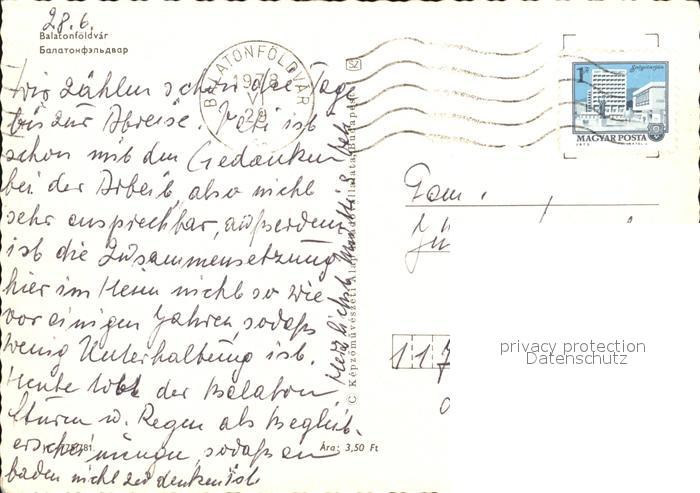 28.6.
Balatonföldvár
Балатонфэльдвар
Wir zählen schon die Tage
bis zur Abreise. ist
schon mit den Gedanken
bei der Arbeit, also nicht
sehr ansprechbar, außerdem
ist die Zusammensetzung
hier im Heim nicht so wie
vor einigen Jahren, sodaß
wenig Unterhaltung ist.
Heute tobt der Balaton,
Sturm u. Regen als Begleit-
erscheinungen, sodaß an
baden nicht zu denken ist.
781.
Ára: 3,50 Ft
Herzlichst
C Képzőművészeti Alap Kiadóvállalata, Budapest
SZ
BALATONFÖLDVÁR
1978
VI
29
1Ft
Salgótarján
MAGYAR POSTA
Fam.
117
privacy protection
Datenschutz